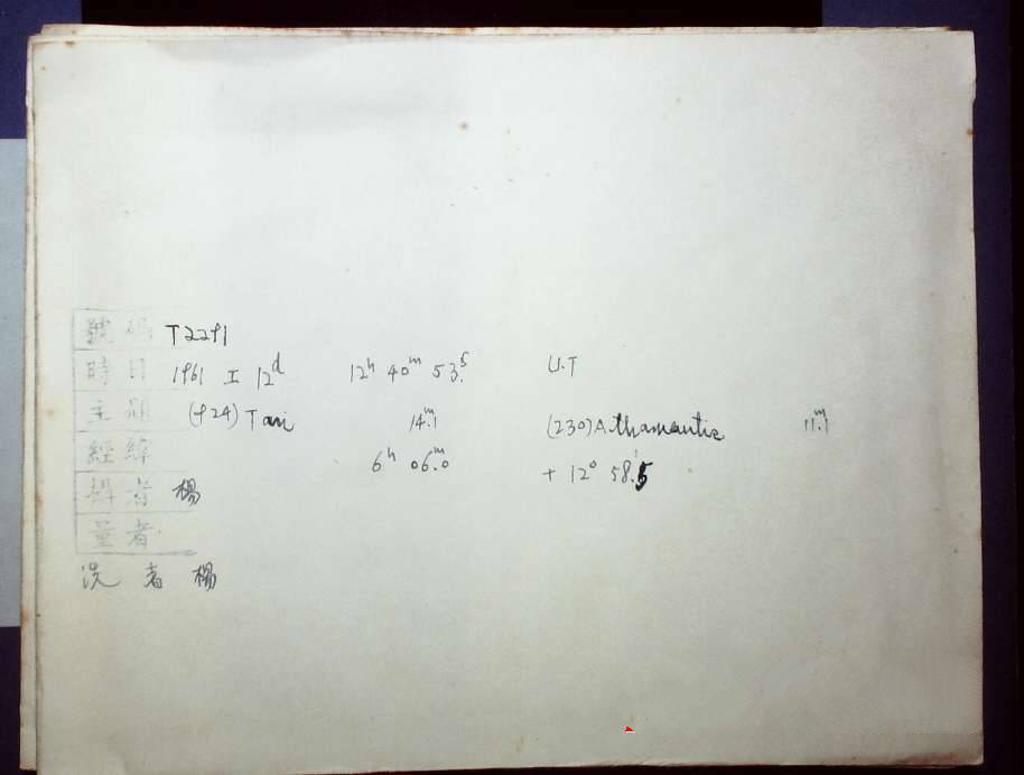 號碼 T2291
時日 1961 I 12ᵈ 12ʰ 40ᵐ 53ˢ. U.T
主題 (924) Toni 14ᵐ.1 (230) Athamantis 11ᵐ.1
經緯 6ʰ 06ᵐ.0 + 12° 58'.5
攝者 楊
量者
洗者 楊